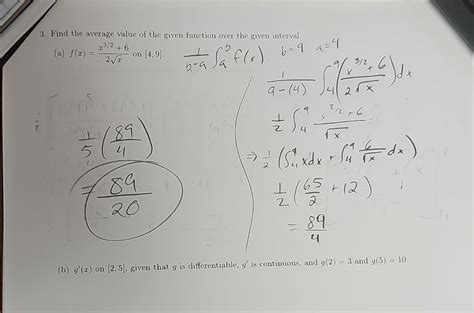 3. Find the average value of the given function over the given interval.
(a) f(x) = (x^{3/2} + 6)/(2√x) on [4, 9].
1/(b-a) ∫_a^b f(x) b=9 a=4
1/(9-(4)) ∫_4^9 ((x^{3/2} + 6)/(2√x)) dx
1/2 ∫_4^9 (x^{3/2} + 6)/√x
⇒ 1/2 (∫_4^9 x dx + ∫_4^9 6/√x dx)
1/2 (65/2 + 12)
= 89/4
1/5 (89/4)
= 89/20
(b) g′(x) on [2, 5], given that g is differentiable, g′ is continuous, and g(2) = 3 and g(5) = 10